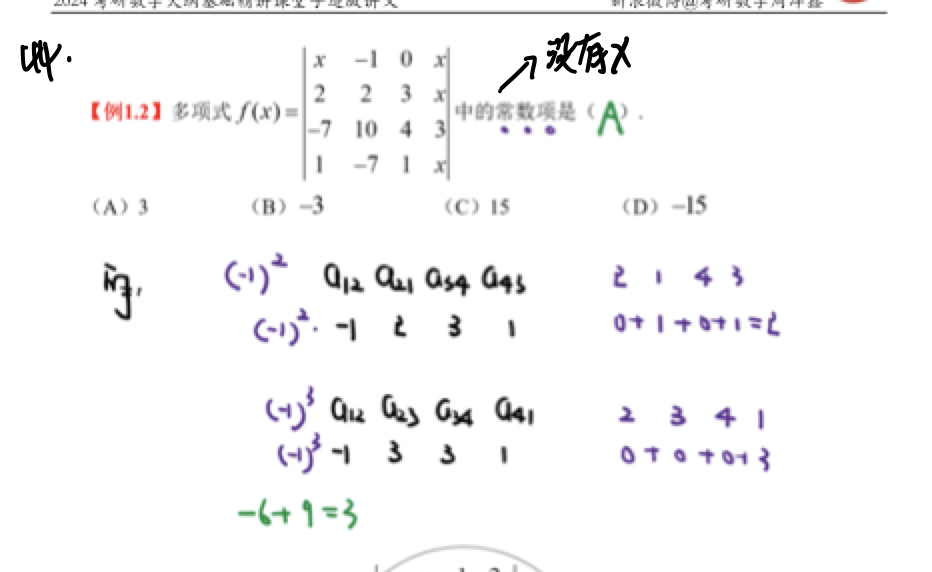 2024 考研数学大纲基础精讲课堂手迹版讲义 新浪微博@考研数学周洋鑫
例4.
没有x
【例1.2】多项式 f(x)=
x -1 0 x
2 2 3 x
-7 10 4 3
1 -7 1 x
中的常数项是（A）.
（A）3 （B）-3 （C）15 （D）-15
(-1)² a12 a21 a34 a43 2 1 4 3
(-1)². -1 2 3 1 0+1+0+1=2
(-1)³ a12 a23 a34 a41 2 3 4 1
(-1)³ -1 3 3 1 0+0+0+3
-6+9=3